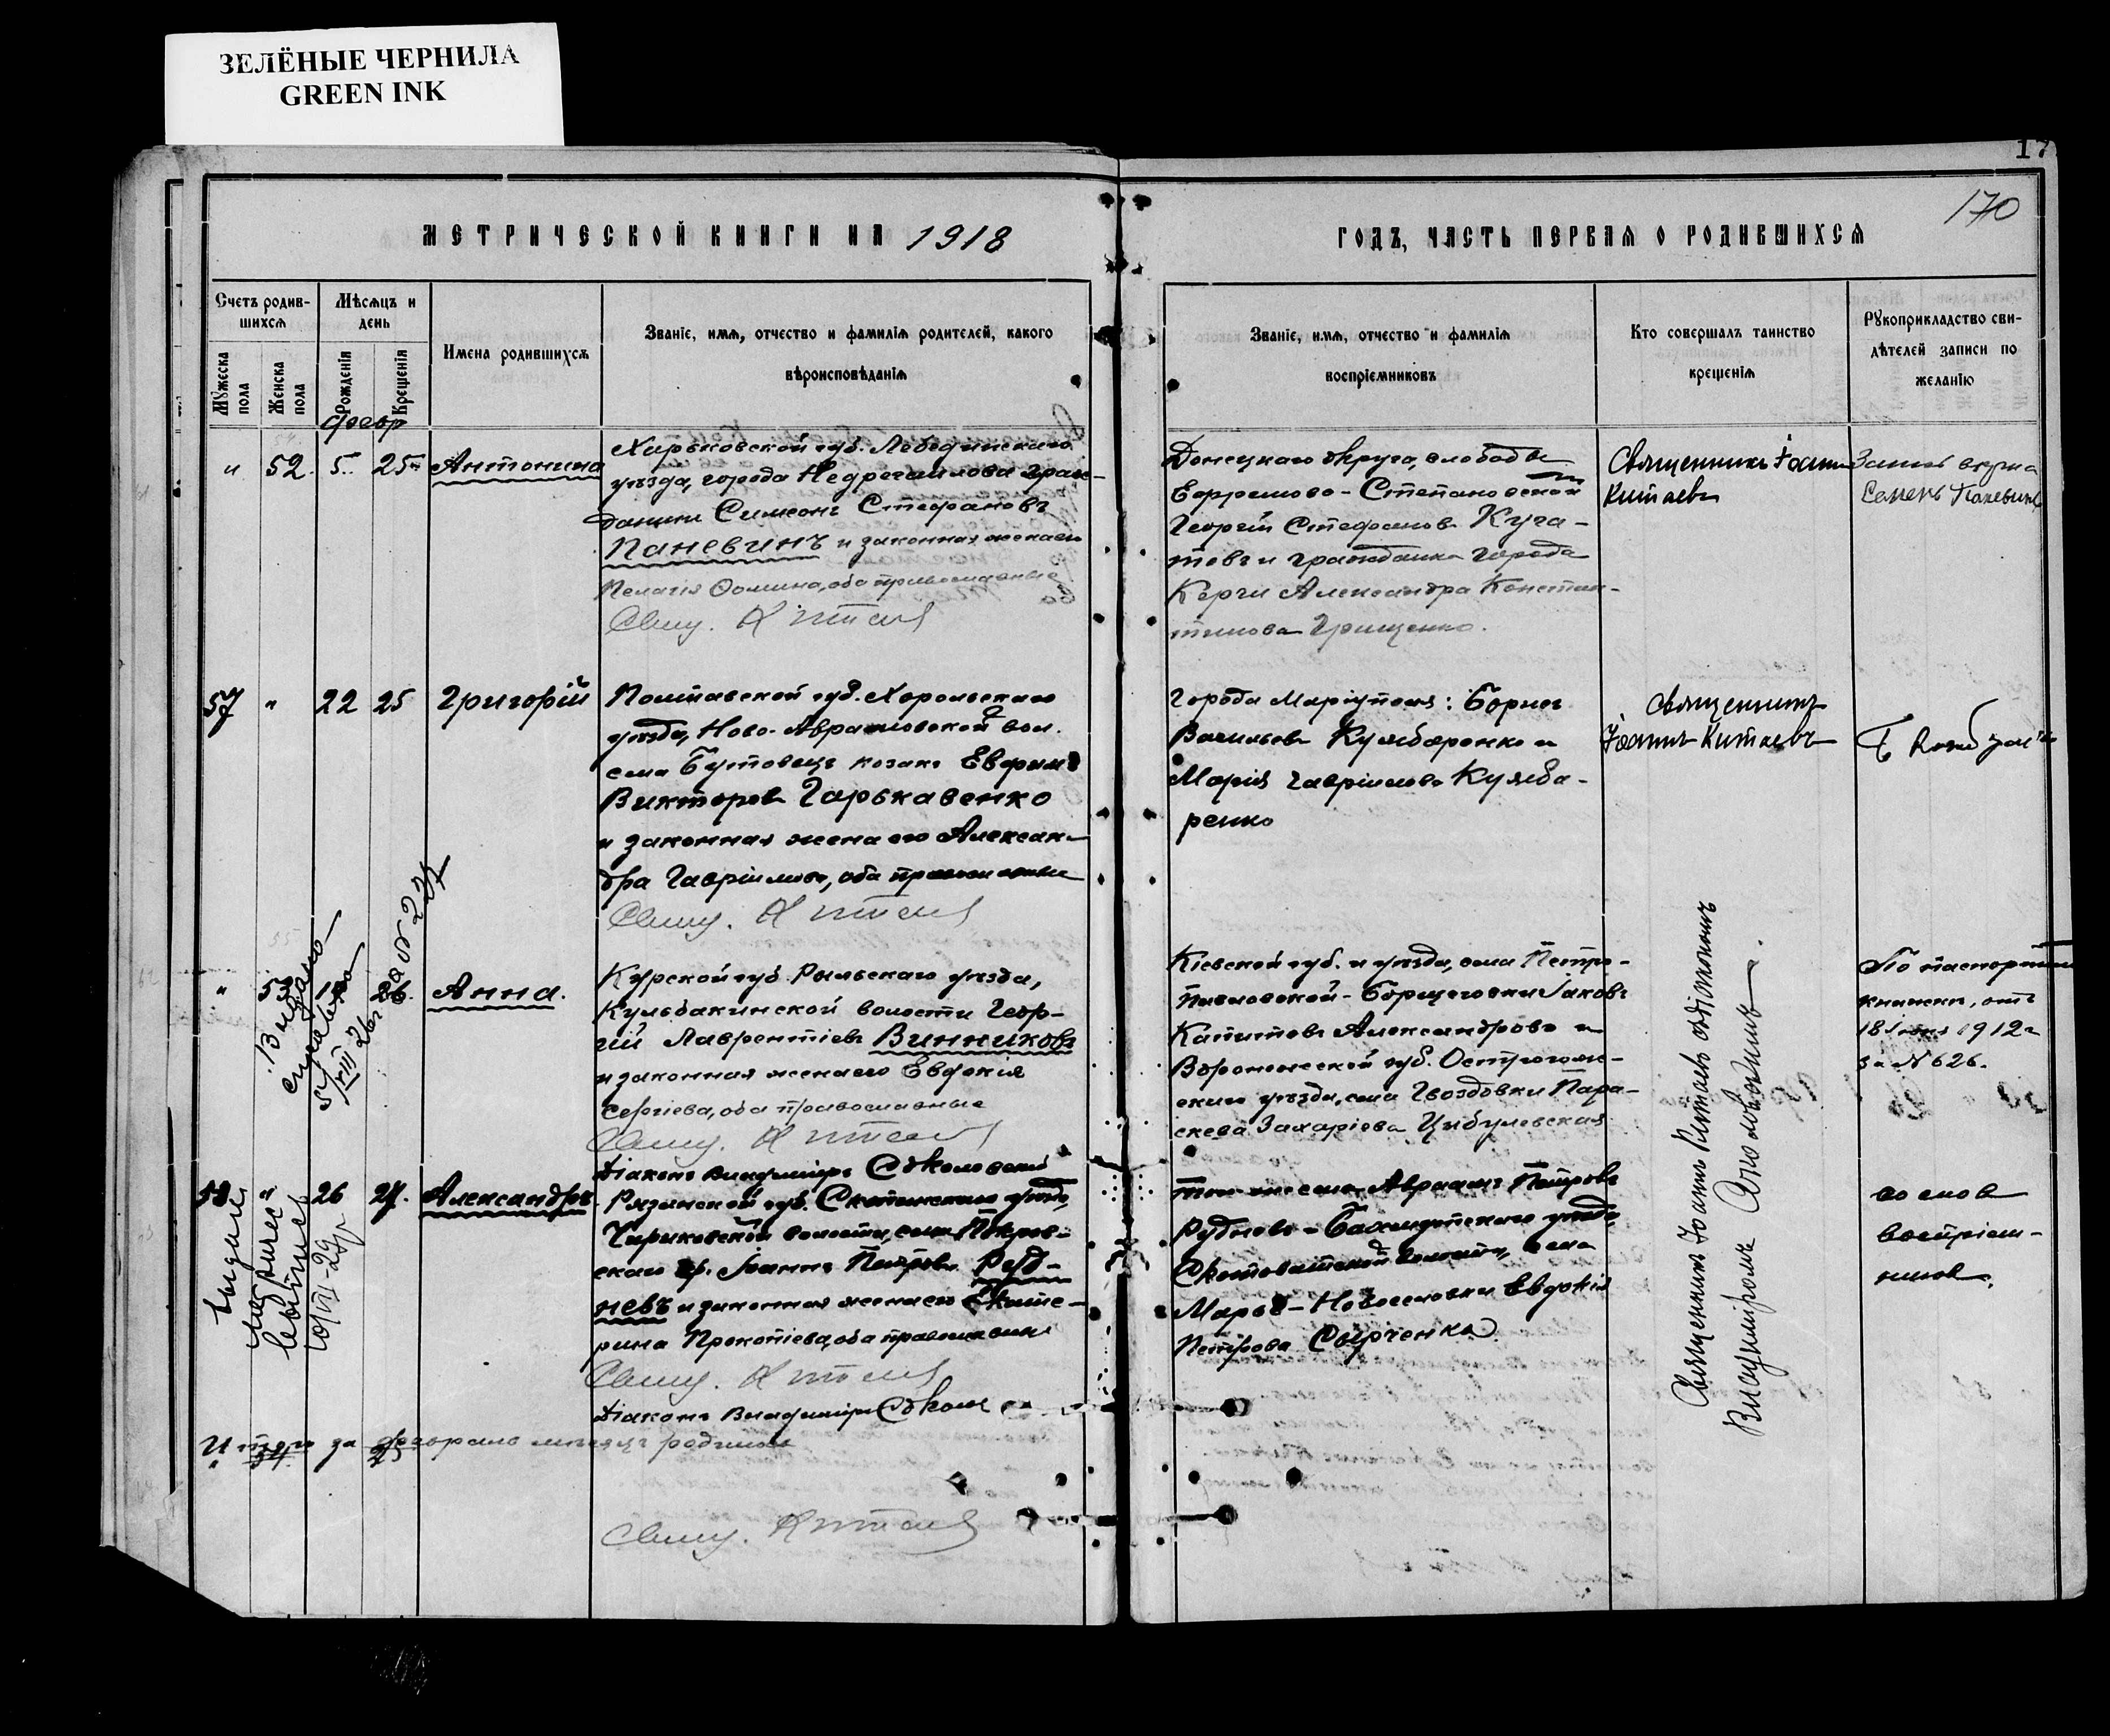 ЗЕЛЁНЫЕ ЧЕРНИЛА
GREEN INK
170
МЕТРИЧЕСКОЙ КНИГИ НА 1918
ГОДЪ, ЧАСТЬ ПЕРВАЯ О РОДИВШИХСЯ
Счетъ родив-
шихся
Мужеска
пола
Женска
пола
Мѣсяцъ и
день
Рожденія
Крещенія
Имена родившихся
Званіе, имя, отчество и фамилія родителей, какого
вѣроисповѣданія
Званіе, имя, отчество и фамилія
воспріемниковъ
Кто совершалъ таинство
крещенія
Рукоприкладство сви-
дѣтелей записи по
желанію
февр
" 52. 5. 25 Антонина
Харьковской губ. Лебединскаго
уѣзда, города Недригайлова граж-
данинъ Симеонъ Стефановъ
Паневинъ и законная жена его
Пелагія Ѳомина, оба православные
Свящ. Китаевъ
Донецкаго округа, слободы
Ефремово-Степановской
Георгій Стефановъ Куча-
товъ и гражданка города
Керчи Александра Констан-
тинова Грищенко.
Священникъ Іоаннъ
Китаевъ
Семенъ Паневинъ
57 " 22 25 Григорій
Полтавской губ. Хорольскаго
уѣзда, Ново-Аврамовской вол.
села Бутовецъ козакъ Евфимъ
Викторовъ Гарькавенко
и законная жена его Алексан-
дра Гавріилова, оба православные
Свящ. Китаевъ
Города Маріуполя: Борисъ
Васильевъ Кулябаренко и
Марія Гавріилова Куляба-
ренко
Священникъ
Іоаннъ Китаевъ
" 53 26. Анна.
Выдано
за № 227
Курской губ. Рыльскаго уѣзда,
Кульбакинской волости Геор-
гій Лаврентіевъ Винниковъ
и законная жена его Евдокія
Сергіева, оба православные
Свящ. Китаевъ
Діаконъ Владиміръ Соколовскій
Кіевской губ. и уѣзда, села Петро-
павловской-Борщеговки Іаковъ
Капитовъ Александровъ и
Воронежской губ. Острогож-
скаго уѣзда, села Гвоздовки Пара-
скева Захаріева Цибулевская
Священникъ Іоаннъ Китаевъ съ діакономъ
Владиміромъ Соколовскимъ.
По паспортной
книжкѣ, отъ
18 Іюня 1912 г
за № 626.
58 " 26 27. Александръ
Выдано
метричес.
Рязанской губ. Скопинскаго уѣзда,
Чириковской волости, села Покров-
скаго гр. Іоаннъ Петровъ Руд-
невъ и законная жена его Екате-
рина Прокопіева, оба православные
Свящ. Китаевъ
Діаконъ Владиміръ Соколов
того же села Авраамъ Петровъ
Рудневъ - Бахмутскаго уѣзда,
Скотоватской волости, села
Марье-Новоселовки Евдокія
Петрова Сырченко
со словъ
воспріем-
никовъ.
Итого за февраль мѣсяцъ родилось
Свящ. Китаевъ